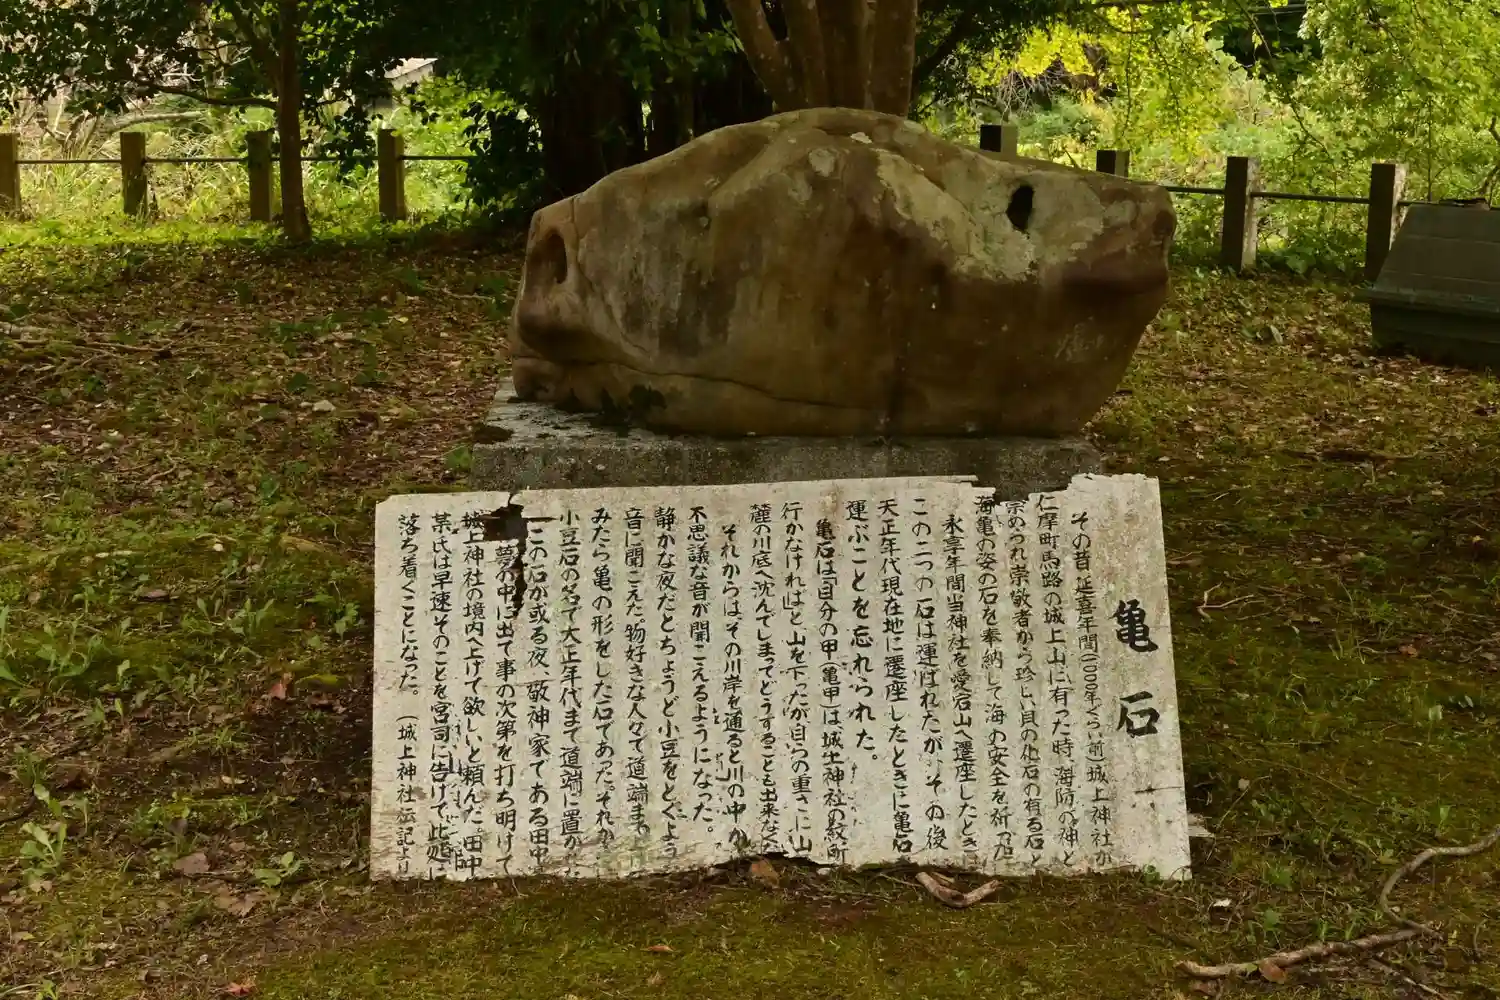 亀石
その昔延喜年間(1000年ぐらい前)城上神社が
仁摩町馬路の城上山に有った時、海防の神と
崇められ崇敬者から珍しい貝の化石の有る石と
海亀の姿の石を奉納して海の安全を祈った
永享年間当神社を愛宕山へ遷座したときに
この二つの石は運ばれたが、その後
天正年代現在地に遷座したときに亀石
運ぶことを忘れられた。
亀石は「自分の甲(亀甲)は城上神社の紋所
行かなければと山を下ったが自らの重さに山
麓の川底へ沈んでしまってどうすることも出来な
それからは、その川岸を通ると川の中か
不思議な音が聞こえるようになった。
静かな夜だとちょうど小豆をとぐよう
音に聞こえた。物好きな人々で道端まで
みたら亀の形をした石であった。それか
小豆石の名で大正年代まで道端に置かれ
この石が或る夜、敬神家である田中
夢の中に出て事の次第を打ち明けて
城上神社の境内へ上げて欲しいと頼んだ。田中
某氏は早速そのことを宮司に告げて此処に
落ち着くことになった。(城上神社伝記より